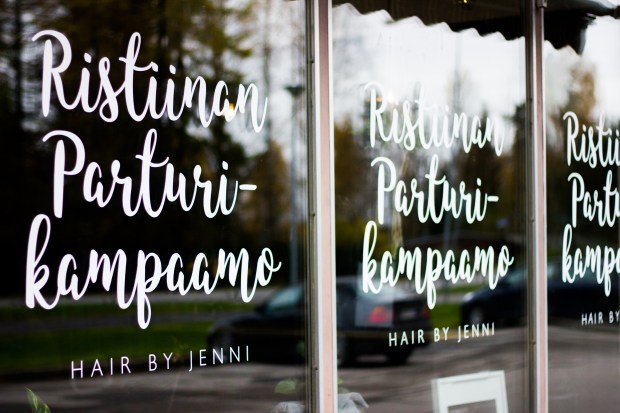 Ristiinan
Parturi-
kampaamo
HAIR BY JENNI
Ristiinan
Parturi-
kampaamo
HAIR BY JENNI
Ristii
Partu
kampa
HAIR BY